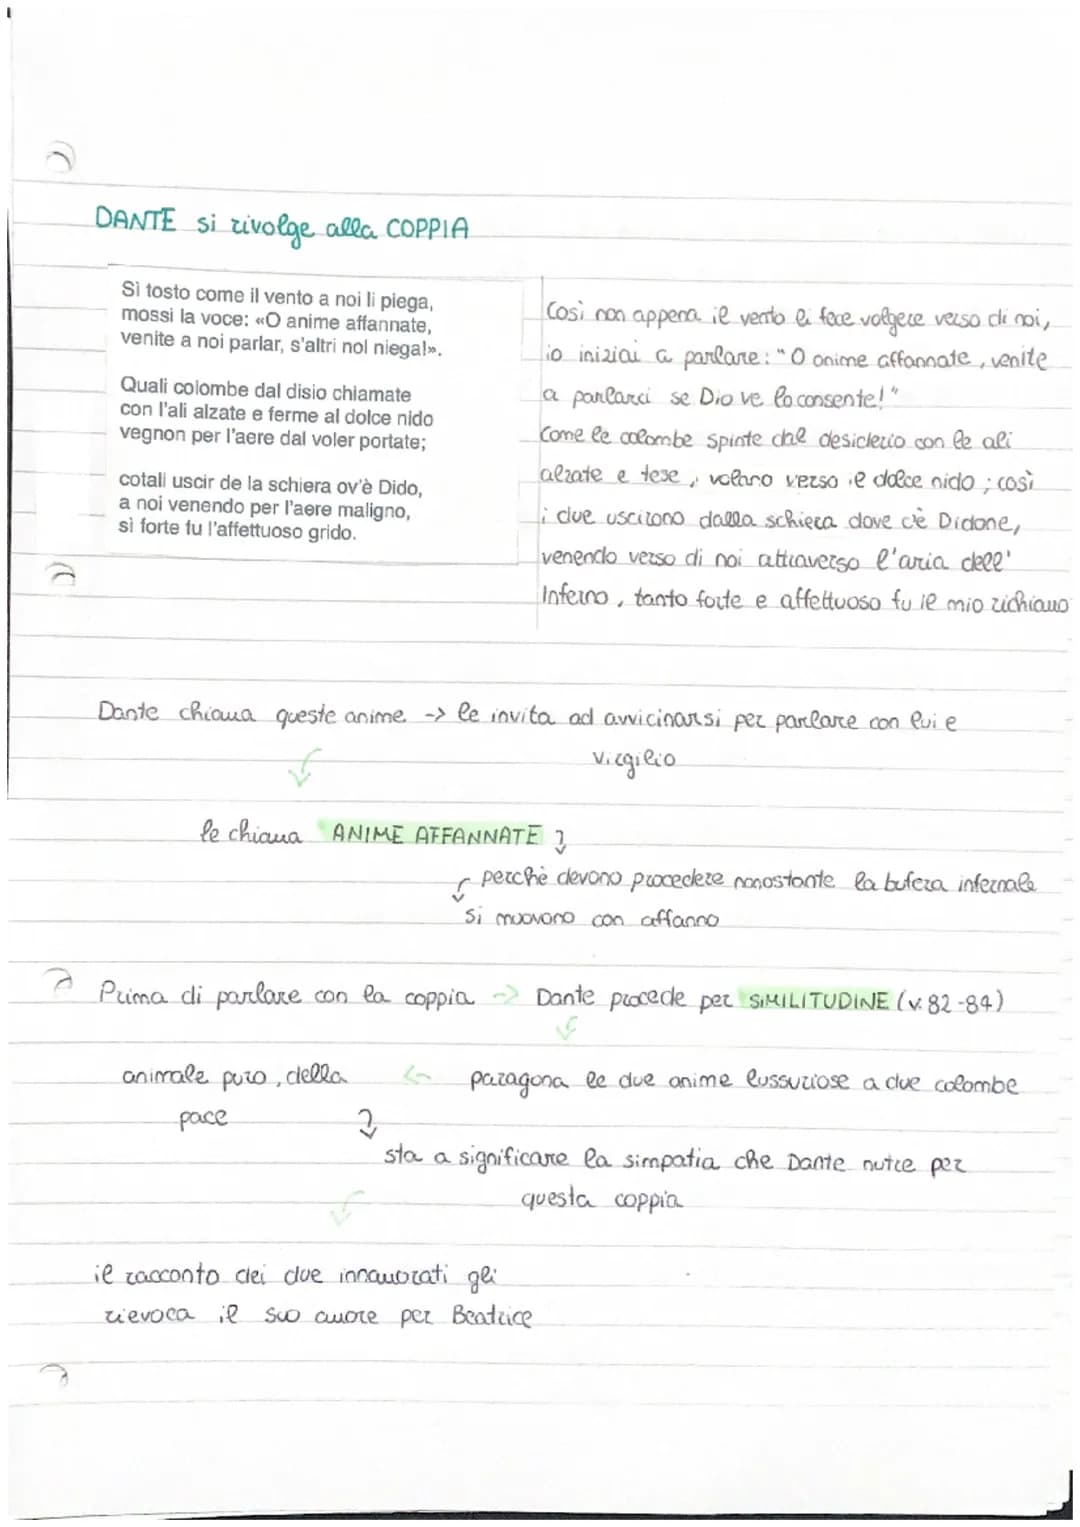 DANTE si rivolge alla COPPIA
Sì tosto come il vento a noi li piega,
mossi la voce: «O anime affannate,
venite a noi parlar, s'altri nol niega!».
Quali colombe dal disio chiamate
con l'ali alzate e ferme al dolce nido
vegnon per l'aere dal voler portate;
cotali uscir de la schiera ov'è Dido,
a noi venendo per l'aere maligno,
sì forte fu l'affettuoso grido.
Così non appena il vento li fece volgere verso di noi,
io iniziai a parlare: "O anime affannate, venite
a parlarci se Dio ve lo consente!"
Come le colombe spinte dal desiderio con le ali
alzate e tese, volano verso il dolce nido; così
i due uscirono dalla schiera dove c'è Didone,
venendo verso di noi attraverso l'aria dell'
Inferno, tanto forte e affettuoso fu il mio richiamo
Dante chiama queste anime -> le invita ad avvicinarsi per parlare con lui e
Virgilio
le chiama ANIME AFFANNATE
perchè devono procedere nonostante la bufera infernale
si muovono con affanno
Prima di parlare con la coppia -> Dante procede per SIMILITUDINE (v. 82-84)
animale puro, della <- paragona le due anime lussuriose a due colombe
pace
sta a significare la simpatia che Dante nutre per
questa coppia
il racconto dei due innamorati gli
rievoca il suo amore per Beatrice